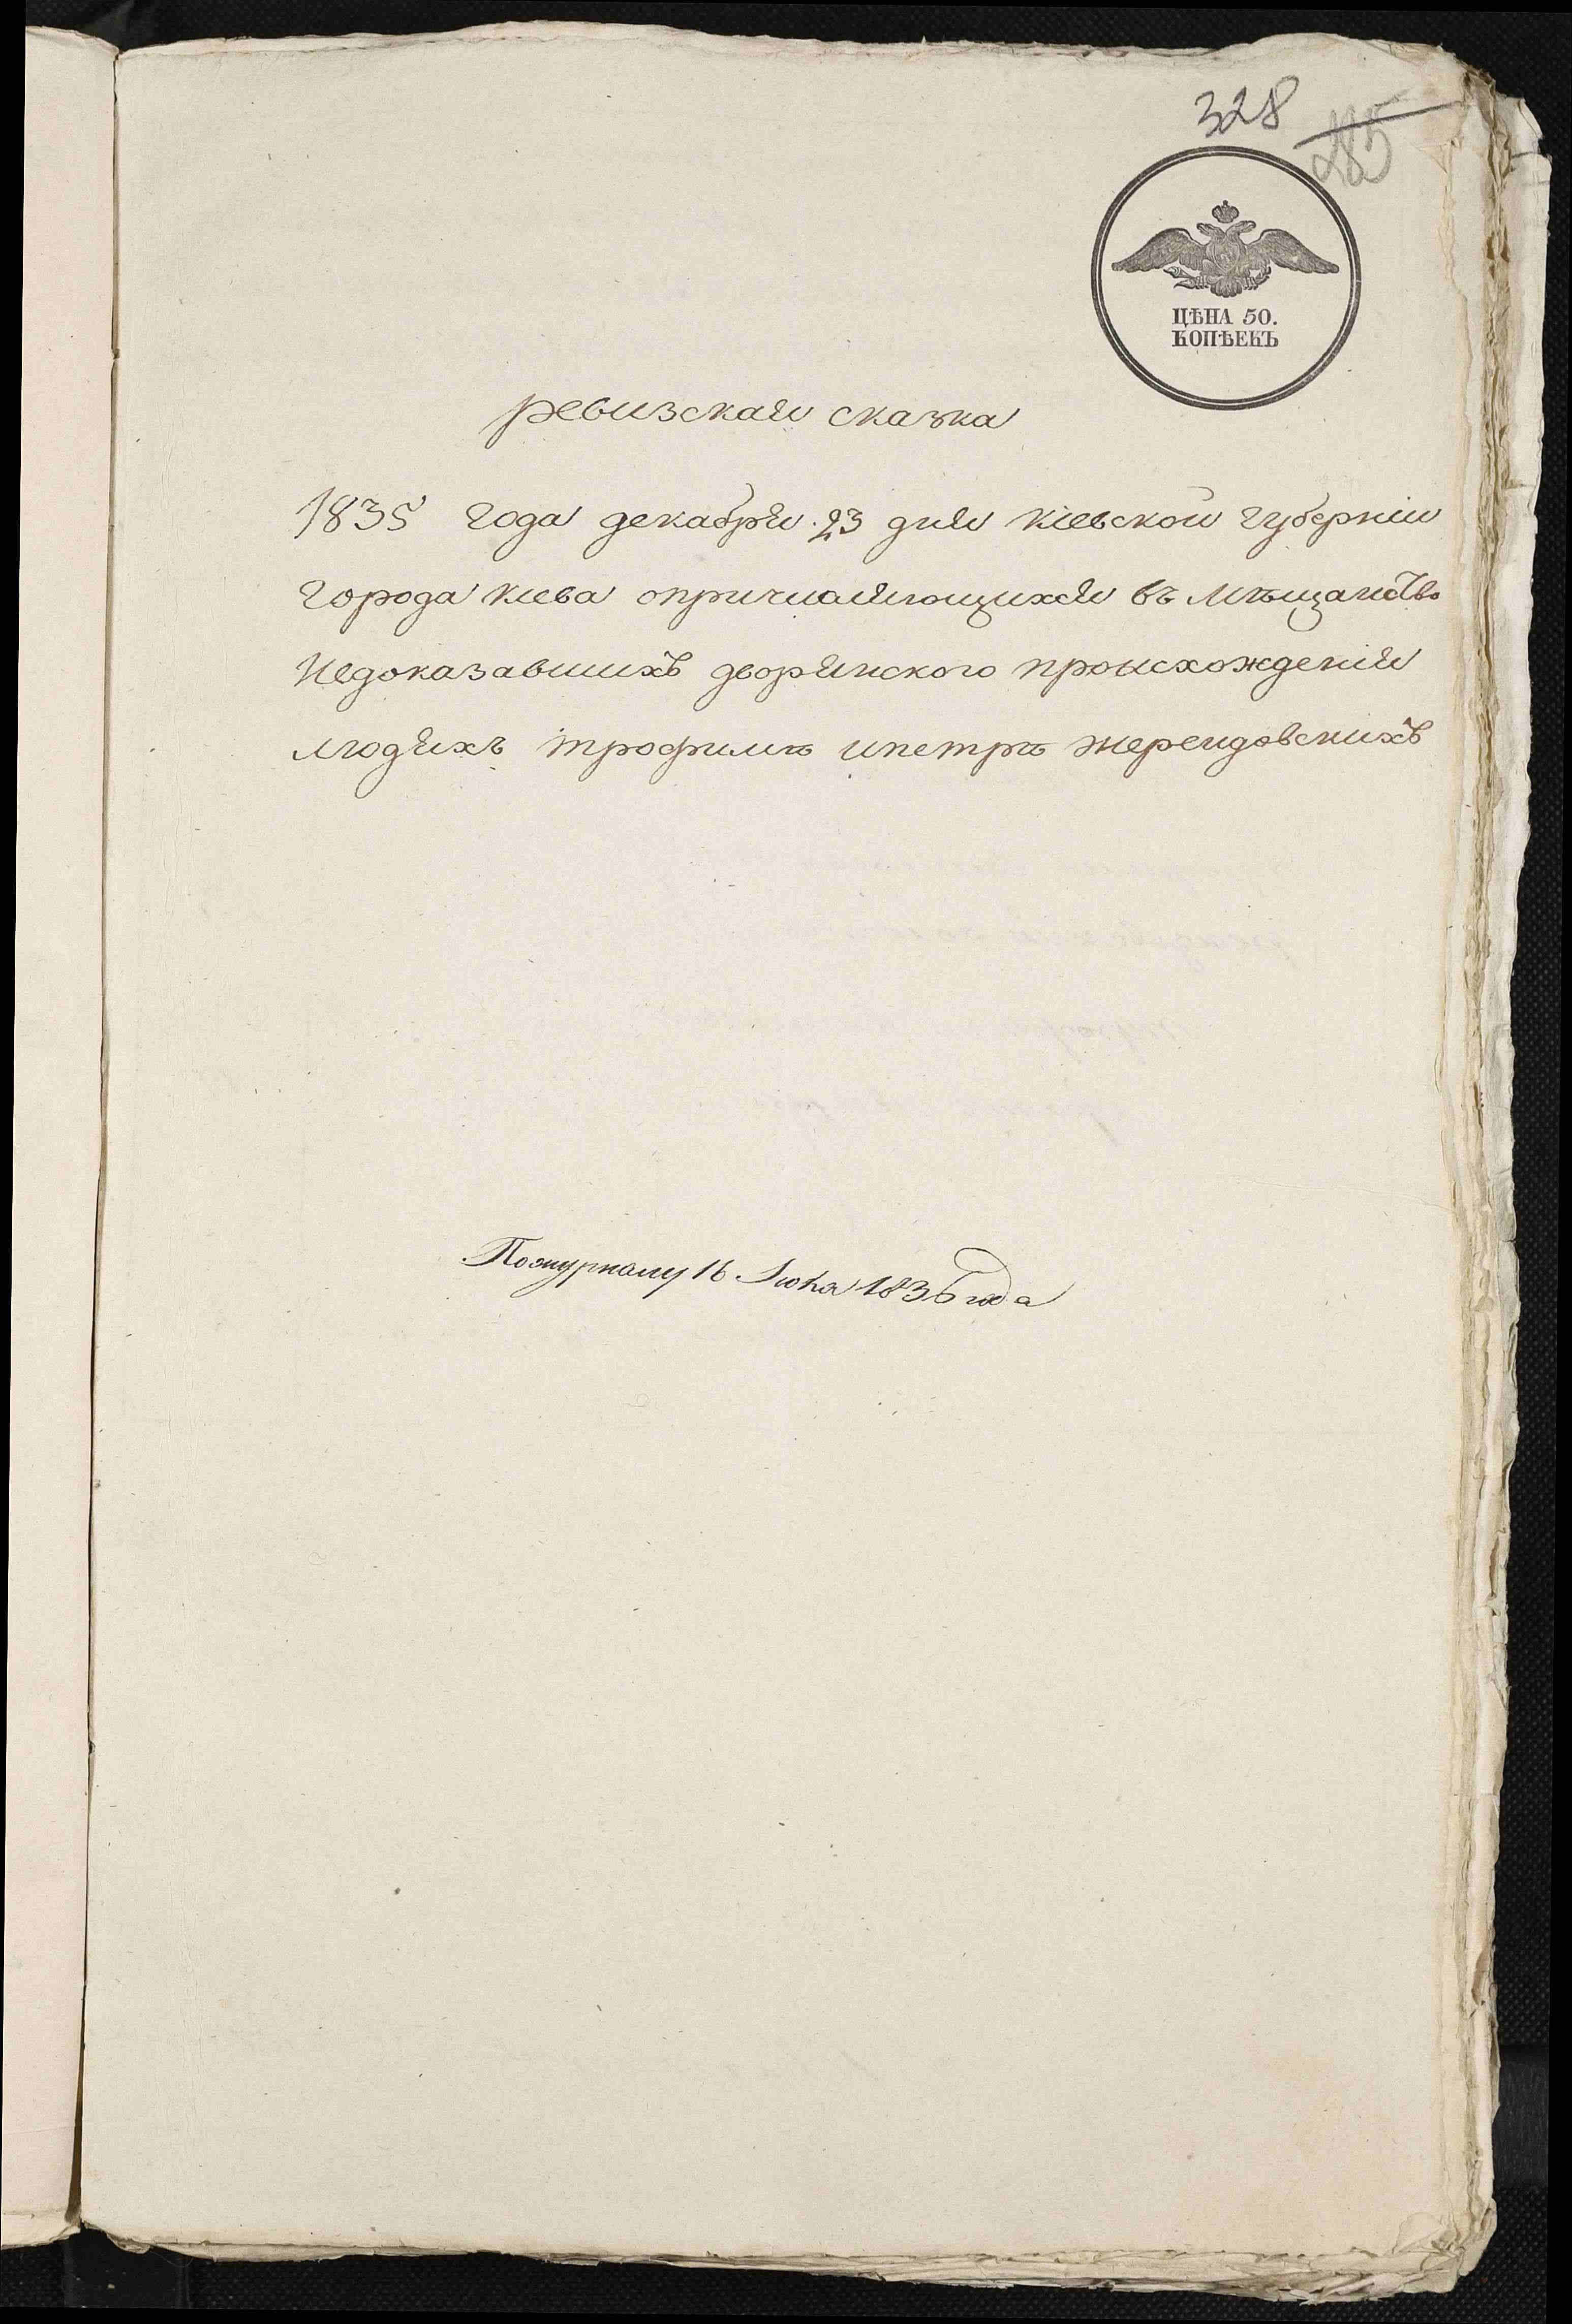 328
285
ЦѢНА 50.
КОПѢЕКЪ
ревизская сказка
1835 года декабря 23 дня киевской губерніи
города киева опричисляющихся въ мѣщанство
недоказавшихъ дворянского происхожденія
людяхъ трофимѣ ипетрѣ жерендовскихъ
Пожурналу 16 Июня 1836 года